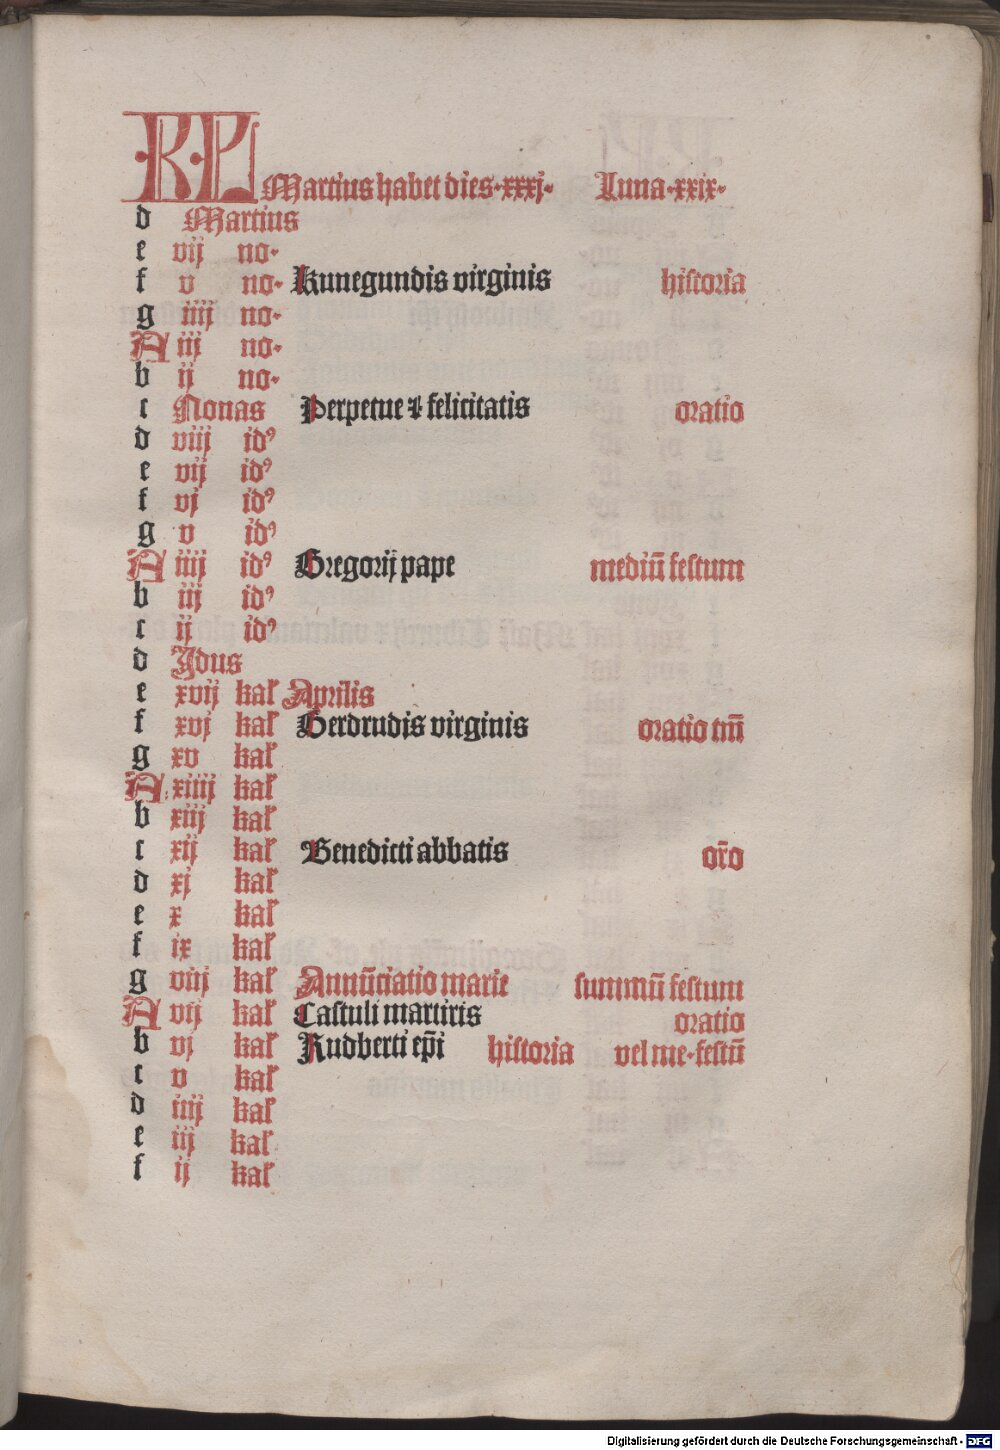 KL Martius habet dies·xxxj· Luna·xxix·
d Martius
e vij no·
f v no· Kunegundis virginis historia
g iiij no·
A iij no·
b ij no·
c Nonas Perpetue ⁊ felicitatis oratio
d viij idꝰ
e vij idꝰ
f vj idꝰ
g v idꝰ
A iiij idꝰ Gregorij pape mediū festum
b iij idꝰ
c ij idꝰ
d Idus
e xvij kal' Aprilis
f xvj kal' Gerdrudis virginis oratio tm̄
g xv kal'
A xiiij kal'
b xiij kal'
c xij kal' Benedicti abbatis or̄o
d xj kal'
e x kal'
f ix kal'
g viij kal' Annūciatio marie summū festum
A vij kal' Castuli martiris oratio
b vj kal' Rudberti ep̄i historia vel me·festū
c v kal'
d iiij kal'
e iij kal'
f ij kal'
Digitalisierung gefördert durch die Deutsche Forschungsgemeinschaft - DFG